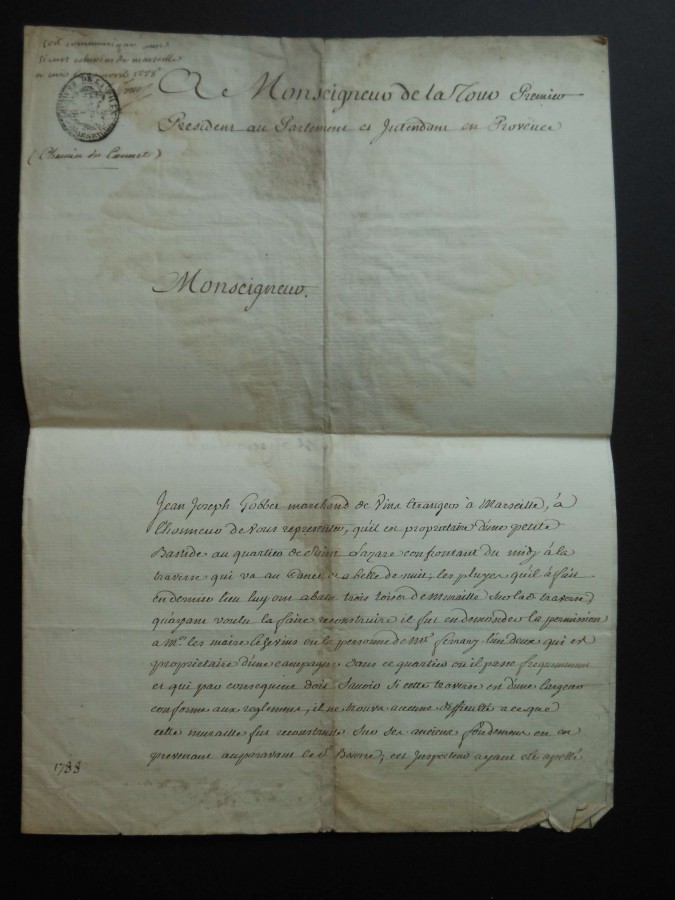 Soit communiqué aux
Sieurs echevins de marseille
avril 1788
A Monseigneur de la Tour Premier
President au Parlement et Intendant en Provence
(Chemin du Cannet)
Monseigneur.
Jean Joseph Gobbet marchand de Vins Etrangers à Marseille, à
L'honneur de Vous representer, qu'il est proprietaire d'une petite
Bastide au quartier de Saint Lazare confrontant du midy à la
traverse qui va au Canet et a belle de nuit, les pluyes qu'il à fait
en dernier lieu luy ont abatu trois toises de Muraille sur lad. traverse
qu'ayant voulu la faire reconstruire il fut en demander la permission
a Mrs. les maire Echevins en la personne de Mr. l'un deux qui est
proprietaire d'une campagne dans ce quartier ou il passe frequemment
et qui par consequent doit Savoir Si cette traverse est d'une largeur
conforme aux reglements, il ne trouva aucune difficulté a ce que
cette muraille fut reconstruite sur ses anciens fondements en en
prevenant auparavant le Sr. cet Inspecteur ayant eté apellé
1788